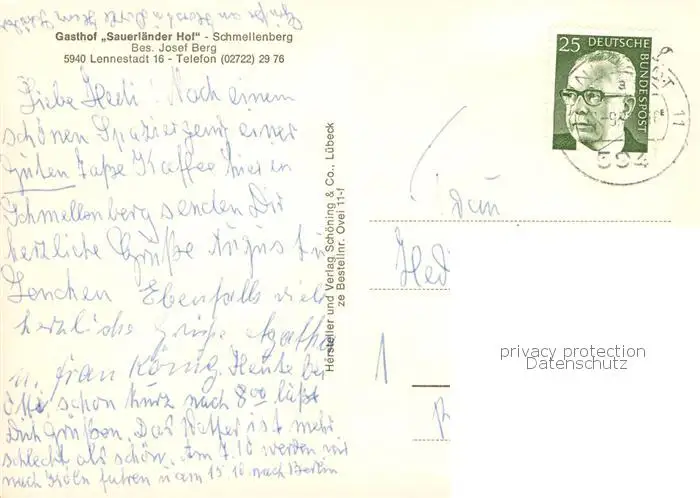 Gasthof „Sauerländer Hof" - Schmellenberg
Bes. Josef Berg
5940 Lennestadt 16 - Telefon (02722) 29 76
Liebe Hedi! Nach einem
schönen Spaziergang einer
guten Taße Kaffee hier in
Schmellenberg senden Dir
herzliche Grüße
Lenchen Ebenfalls viele
herzliche Grüße Agathe
u. Frau König. Heute bei
schon kurz nach 8 00 läßt
Dich Grüßen. Das Wetter ist mehr
schlecht als schön. Am 7.10 werden wir
nach Köln fahren u am 15 10 nach Berlin
Hersteller und Verlag Schöning & Co., Lübeck
ze Bestellnr. Ovei 11-f
25 DEUTSCHE BUNDESPOST
594
11
Hedi
privacy protection
Datenschutz